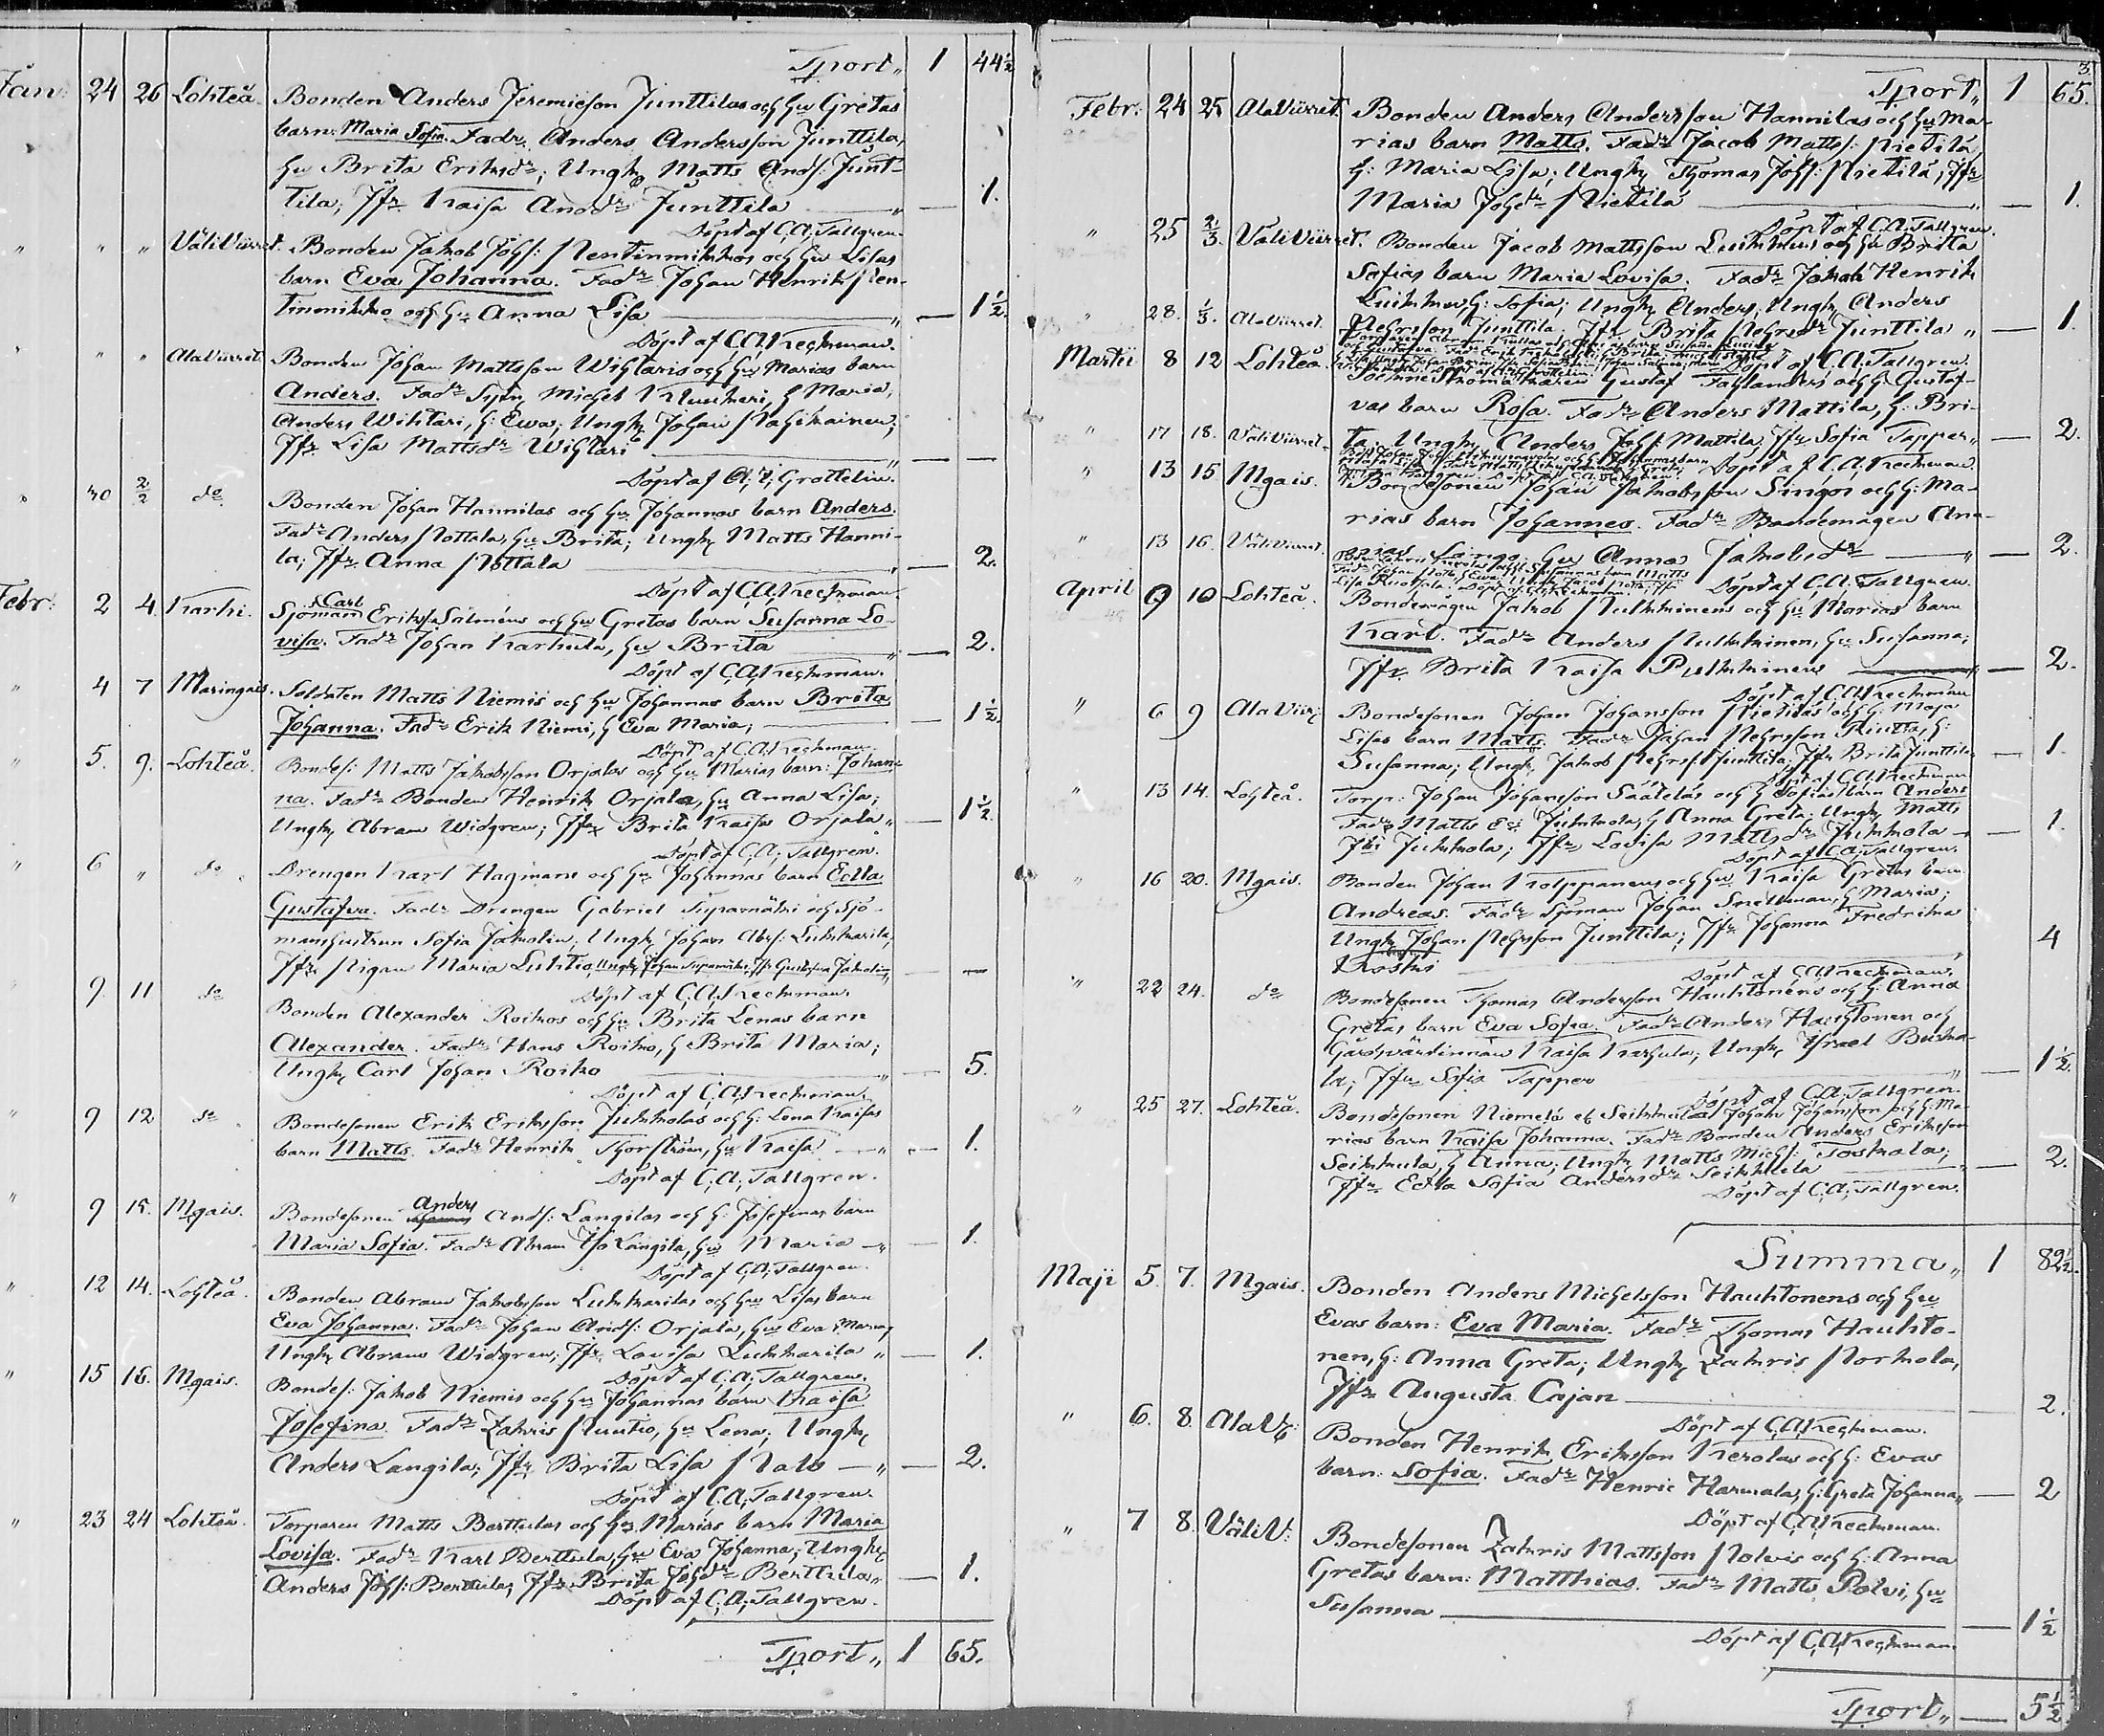 Tport„ 1 44½
Jan: 24 26 Lohteå. Bonden Anders Jeremieson Junttilas och Hu Gretas
barn: Maria Sofia. Fadr. Anders Andersson Junttila,
Hu Brita Eriksdr; Ungk Matts Ands: Junt-
tila; Jfr Kaisa Andsdr Junttila „ — 1.
Döpt af C.A. Tallgren.
„ „ „ Väli Viirret. Bonden Jakob Johs: Pentinmikkos och Hu Lisas
barn Eva Johanna. Fadr Johan Henrik Pen-
tinmikko och Hu Anna Lisa „ — 1½.
Döpt af C.A. Keckman.
„ „ „ Ala Viirret Bonden Johan Mattsson Wihtaris och Hu Marias barn
Anders. Fadr Sjm Michel H Maria;
Anders Wihtari, H: Ewa; Ungk Johan
Jfr Lisa Mattsdr Wihtari „ — —
Döpt af A; I; Grottelin.
„ 30 2/2 do Bonden Johan Hannilas och Hu Johannas barn Anders.
Fadr Anders Pottala, Hu Brita; Ungk Matts Hanni-
la; Jfr Anna Pottala „ — 2.
Döpt af C.A. Keckman.
Febr: 2 4. Karhi. Sjöman Carl Eriks: Salmens och Hu Gretas barn Susanna Lo-
visa. Fadr Johan Karhula, Hu Brita „ — 2.
Döpt af C.A. Keckman.
„ 4 7 Maringais. Soldaten Matts Niemis och Hu Johannas barn Brita
Johanna. Fadr Erik Niemi, H Eva Maria; — 1½.
Döpt af C.A. Keckman.
„ 5. 9. Lohteå. Bondes: Matts Jakobsson Orjalas och Hu Marias barn: Johan-
na. Fadr Bonden Henrik Orjala, Hu Anna Lisa;
Ungk Abram Widgren; Jfr Brita Kaisa Orjala „ — 1½.
Döpt af C.A; Tallgren.
„ 6 „ do. Drengen Karl Hagmans och Hu Johannas barn Edla
Gustafva. Fadr Drengen Gabriel Sipamäki och Sjö-
manshustrun Sofia Jakolin; Ungk Johan Abrs: Lukkarila,
Jfr Pigan Maria Luhtio, Ungk Johan Sipamäki, Jfr Gustafva Jakolin, — —
Döpt af C.A. Keckman.
9. 11 do Bonden Alexander Roikos och Hu Brita Lenas barn
Alexander. Fadr Hans Roiko, H Brita Maria;
Ungk Carl Johan Roiko „ — 5.
Döpt af C.A. Keckman.
„ 9 12 do. Bondesonen Erik Eriksson Jukkolas och H: Lena Kaisas
barn Matts. Fadr Henrik Thorström, Hu Kaisa — „ — 1.
Döpt af C; A; Tallgren.
„ 9 15. Mgais. Bondesonen Anders Ands: Langilas och H: Josefinas barn
Maria Sofia. Fadr Abram Iso Langila, Hu Maria — „ — 1.
Döpt af C; A; Tallgren.
„ 12 14. Lohteå. Bonden Abram Jakobsson Lukkarilas och Hu Lisas barn
Eva Johanna. Fadr Johan Ands: Orjala, Hu Eva Maria,
Ungk Abram Widgren; Jfr Lovisa Lukkarila „ — 1.
Döpt af C: A; Tallgren.
„ 15 16. Mgais. Bondes: Jakob Niemis och Hu Johannas barn Kaisa
Josefina. Fadr Zakris Puutio, Hu Lena; Ungk
Anders Langila; Jfr Brita Lisa Palo — „ — 2.
Döpt af C; A; Tallgren.
„ 23 24 Lohteå. Torparen Matts Berttulas och Hu Marias barn Maria
Lovisa. Fadr Karl Berttula, Hu Eva Johanna; Ungk
Anders Johs: Berttula; Jfr Brita Johsdr Berttula „ — 1.
Döpt af C; A; Tallgren.
Tport„ 1 65.
3.
Tport„ 1 65.
Febr: 24 25 Ala Viirret. Bonden Anders Andersson Hannilas och Hu Ma-
rias barn Matts. Fadr Jacob Matts: Pietilä
H: Maria Lisa; Ungk Thomas Johs: Pietilä; Jfr
Maria Johsdr Pietilä „ — 1.
Döpt af C.A. Tallgren.
„ 25 2/3. Väli Viirret. Bonden Jacob Mattsson Luikkus och Hu Brita
Sofias barn Maria Lovisa. Fadr Jakob Henrik
Luikku, H: Sofia; Ungk Anders; Ungk Anders
„ 28. 1/3. Ala Viirret. Pehrsson Junttila; Jfr Brita Pehrsdr Junttila „ — 1.
Döpt af C.A. Tallgren.
Martii 8 12 Lohteå. Gustaf Fahlanders och H: Gustaf-
vas barn Rosa. Fadr Anders Mattila, H: Bri-
„ 17 18. Väli Viirret. ta; Ungk Anders Johs: Mattila, Jfr Sofia Tapper „ — 2.
Döpt af C.A. Keckman.
„ 13 15 Mgais. Bondesonen Johan Jakobsson Singos och H: Ma-
rias barn Johannes. Fadr Bondemågen And-
„ 13 16. Väli Viirret. reas Singo; Hu Anna Jakobsdr „ — 2.
Döpt af C.A. Tallgren.
April 9 10 Lohteå. Bondemågen Jakob Pulkkinens och Hu Marias barn
Karl. Fadr Anders Pulkkinen, Hu Susanna;
Jfr Brita Kaisa Pulkkinen „ — 2.
Döpt af C.A. Keckman
„ 6 9 Ala Viir; Bondesonen Johan Johansson Pietiläs och H: Maja
Lisas barn Matts. Fadr Johan Pehrsson H:
Susanna; Ungk Jakob Pehrs: Junttila; Jfr Brita Junttila — 1.
Döpt af C.A. Keckman
„ 13 14. Lohteå. Torp: Johan Johansson Sääteläs och H Sofias barn Anders
Fadr Matts Jukkola, H Anna Greta; Ungk Matts
Jukkola; Jfr Lovisa Mattsdr Jukkola — „ — 1.
Döpt af C.A; Tallgren.
„ 16 20. Mgais. Bonden Johan Kolppanens och Hu Kaisa Gretas barn
Andreas. Fadr Sjöman Johan Snellman, H Maria;
Ungk Johan Pehrsson Junttila; Jfr Johanna Fredrika
Koski 4
Döpt af C.A. Keckman.
„ 22 24. do Bondesonen Thomas Andersson Hauhtonens och H: Anna
Gretas barn Eva Sofia. Fadr Anders Hauhtonen och
Gårdsvärdinnan Kaisa Karhula; Ungk Israel
la; Jfr Sofia Tapper „ — 1½.
Döpt af C.A. Tallgren.
„ 25 27. Lohteå. Bondesonen Niemelä el Seikkula Johan Johansson och H: Ma-
rias barn Kaisa Johanna. Fadr Bonden Anders Eriksson
Seikkula, H Anna; Ungk Matts Mich: Toskala;
Jfr Edla Sofia Andersdr Seikkula „ — 2.
Döpt af C.A; Tallgren.
Summa„ 1 82½.
Maji 5. 7. Mgais. Bonden Anders Michelsson Hauhtonens och Hu
Evas barn: Eva Maria. Fadr Thomas Hauhto-
nen, H: Anna Greta; Ungk Zakris Porkola,
Jfr Augusta Cajan — 2.
Döpt af C.A. Keckman.
„ 6. 8. Ala V: Bonden Henrik Eriksson Kerolas och H: Evas
barn: Sofia. Fadr Henric Harmala, H: Greta Johanna„ — 2
Döpt af C.A. Keckman.
„ 7 8. Väli V: Bondesonen Zakris Mattsson Polvis och H: Anna
Gretas barn: Matthias. Fadr Matts Polvi, Hu
Susanna — 1½
Döpt af C.A. Keckman
Tport„ — 5½